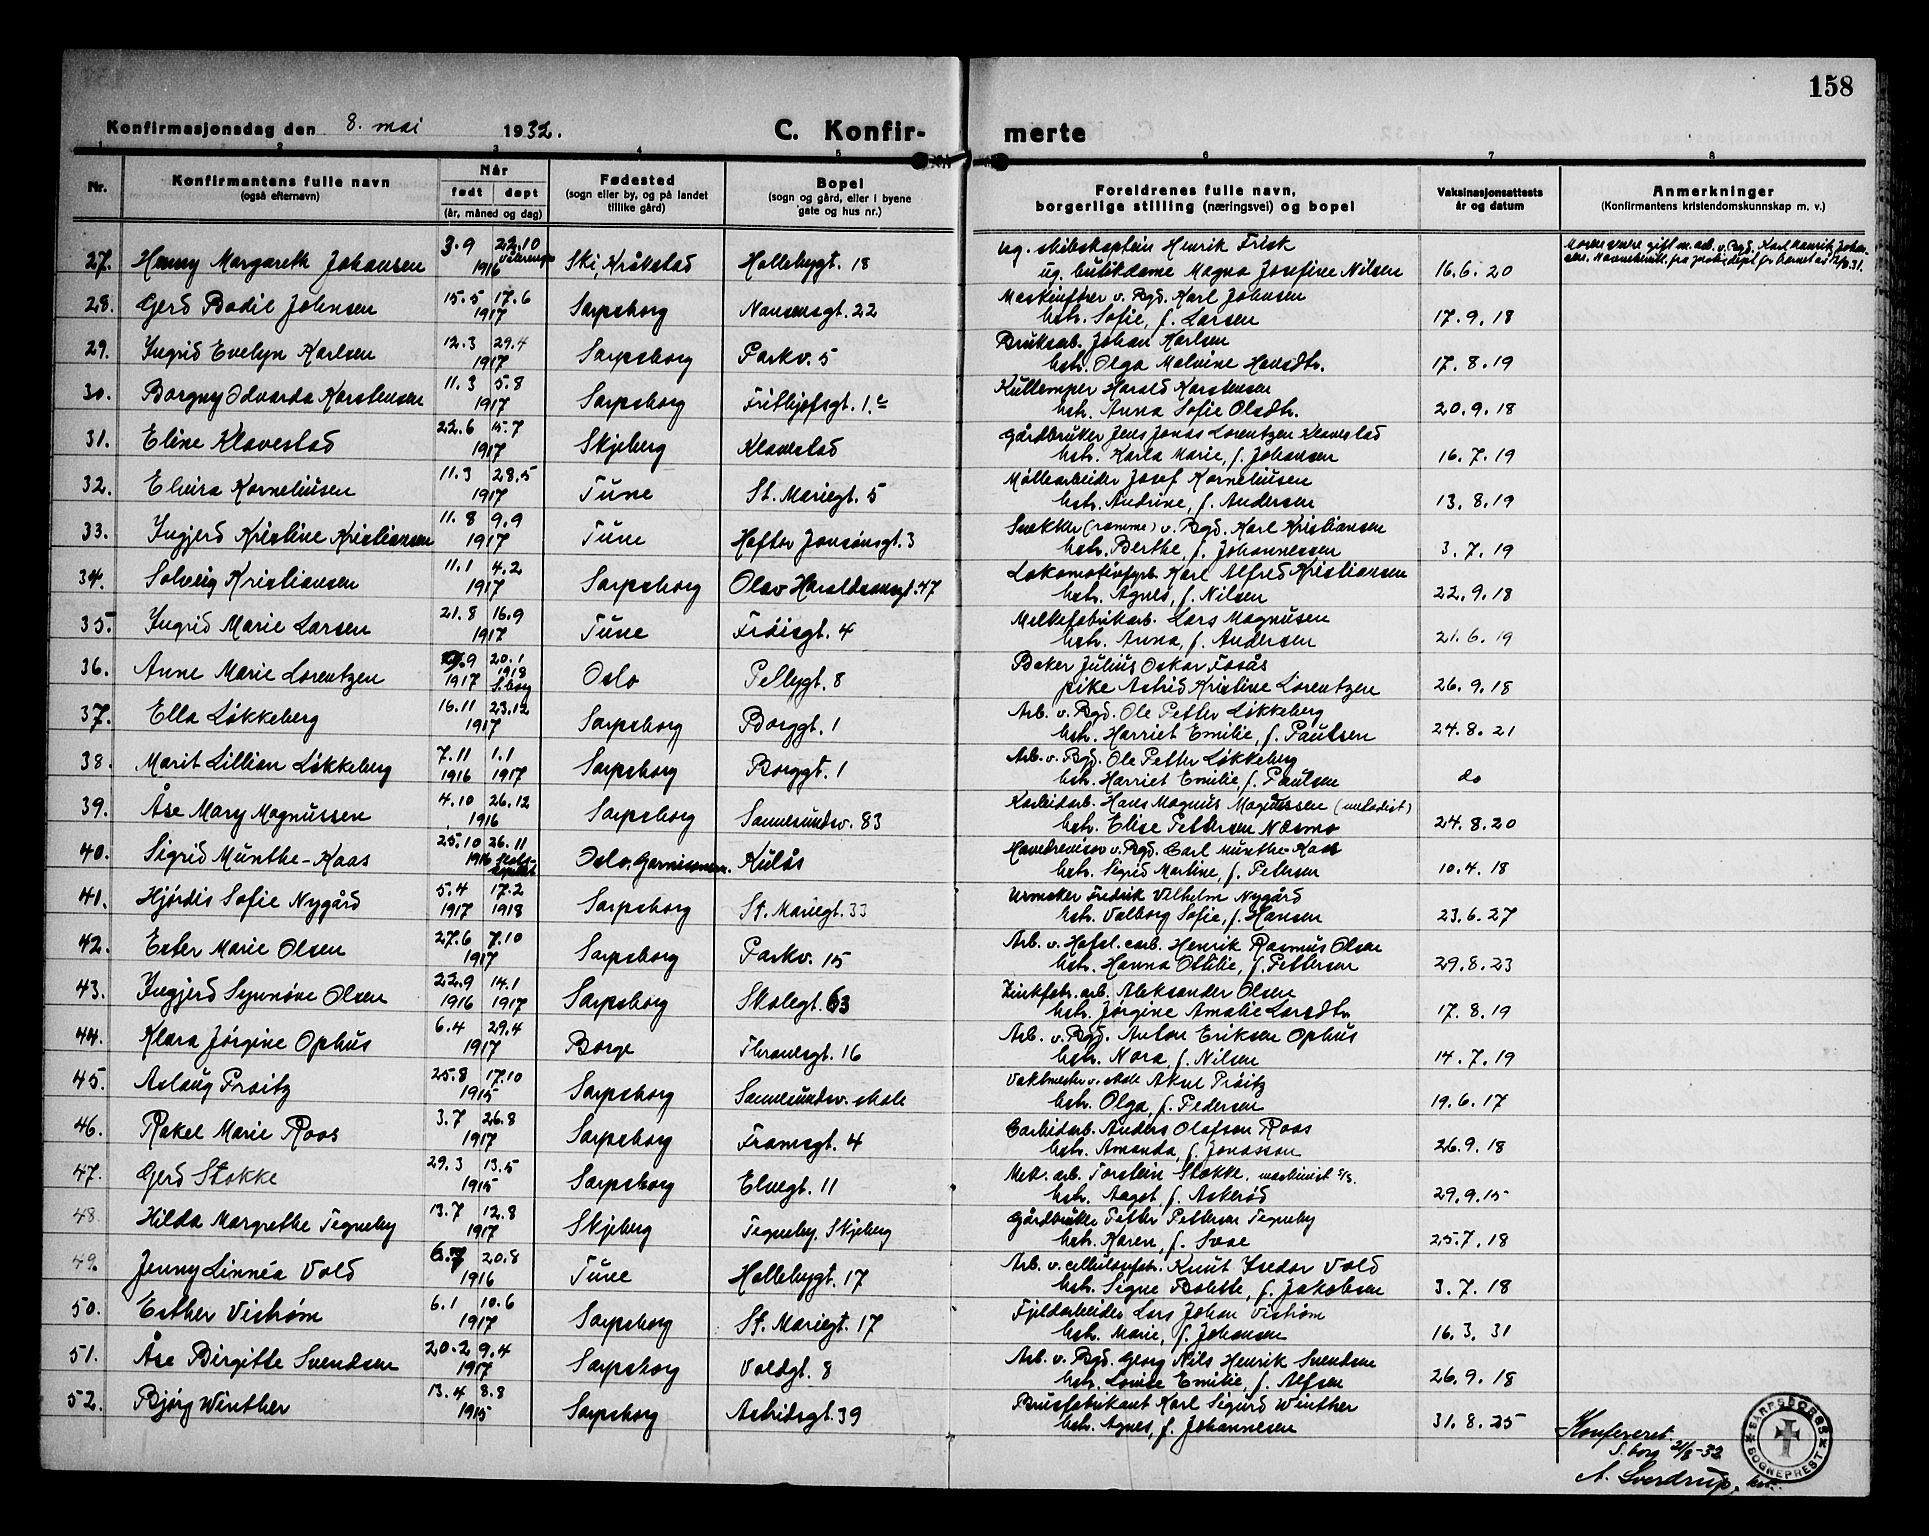 158
Konfirmasjonsdag den 8. mai 1932. C. Konfir- merte
1 2 3 4 5 6 7 8
Nr. Konfirmantens fulle navn Når Fødested Bopel Foreldrenes fulle navn, Vaksinasjonsattests Anmerkninger
(også efternavn) født døpt (sogn eller by, og på landet (sogn og gård, eller i byene borgerlige stilling (næringsvei) og bopel år og datum (Konfirmantens kristendomskunnskap m. v.)
(år, måned og dag) tillike gård) gate og hus nr.)
3.9 22.10 ug. skibskaptein Henrik Frisk
27. Henny Margareth Johansen 1916 Ski, Kråkstad Hollebygt. 18 ug. butikdame Magna Josefine Nilsen 16.6.20
15.5 17.6 Maskinfører v. Bgd. Karl Johnsen
28. Gerd Bodil Johnsen 1917 Sarpsborg Nansensgt. 22 hstr. Sofie, f. Larsen 17.9.18
12.3 29.4 Bruksarb. Johan Karlsen
29. Ingrid Evelyn Karlsen 1917 Sarpsborg Parkv. 5 hstr. Olga Malvine Hansdtr. 17.8.19
11.3 5.8 Kullemper Harald Karstensen
30. Borgny Edvarda Karstensen 1917 Sarpsborg Frithjofsgt. 1. hstr. Anna Sofie Olsdtr. 20.9.18
22.6 15.7 Gårdbruker Jens Jonas Lorentzen Klavestad
31. Eline Klavestad 1917 Skjeberg Klavestad hstr. Karla Marie, f. Johansen 16.7.19
11.3 28.5 Møllearbeider Josef Korneliusen
32. Elvira Korneliusen 1917 Tune St. Mariegt. 5 hstr. Andrine, f. Andersen 13.8.19
11.8 9.9 Snekker (ramme) v. Bgd. Karl Kristiansen
33. Ingjerd Kristine Kristiansen 1917 Tune Haftor Jonsønsgt. 3 hstr. Berthe, f. Johannessen 3.7.19
11.1 4.2 Lokomotivfyrb. Karl Alfred Kristiansen
34. Solveig Kristiansen 1917 Sarpsborg Olav Haraldssonsgt. 47 hstr. Agnes, f. Nilsen 22.9.18
21.8 16.9 Melkefabrikarb. Lars Magnusen
35. Ingrid Marie Larsen 1917 Tune Frøisgt. 4 hstr. Anna, f. Andersen 21.6.19
.9 20.1 Baker Julius Oskar Fosås
36. Anne Marie Lorentzen 1917 1918 S.borg Oslo Pellygt. 8 pike Astrid Kristine Lorentzen 26.9.18
16.11 23.12 Arb. v. Bgd. Ole Petter Løkkeberg
37. Ella Løkkeberg 1917 Sarpsborg Borggt. 1 hstr. Harriet Emilie, f. Paulsen 24.8.21
7.11 1.1 Arb. v. Bgd. Ole Petter Løkkeberg
38. Marit Lillian Løkkeberg 1916 1917 Sarpsborg Borggt. 1 hstr. Harriet Emilie f. Paulsen do
4.10 26.12 Karbidarb. Hans Magnus Magnussen (metodist)
39. Åse Mary Magnussen 1916 Sarpsborg Sannesundsv. 83 hstr. Elise Pettersen Næsmo 24.8.20
25.10 26.11 Hovedrevisor v. Bgd. Carl Munthe-Kaas
40. Sigrid Munthe-Kaas 1916 Oslo, Garnisonen. Kulås hstr. Sigrid Martine, f. Petersen 10.4.18
5.4 17.2 Urmaker Fredrik Vilhelm Nygård
41. Hjørdis Sofie Nygård 1917 1918 Sarpsborg St. Mariegt. 33 hstr. Valborg Sofie, f. Hansen 23.6.27
27.6 7.10 Arb. v. Hafsl. carb. Henrik Rasmus Olsen
42. Ester Marie Olsen 1917 Sarpsborg Parkv. 15 hstr. Hanna Ottilie, f. Pettersen 29.8.23
22.9 14.1 Zinkfabr. arb. Aleksander Olsen
43. Ingjerd Synnøve Olsen 1916 1917 Sarpsborg Skolegt. 63 hstr. Jørgine Amalie Larsdtr. 17.8.19
6.4 29.4 Arb. v. Bgd. Anton Eriksen Ophus
44. Klara Jørgine Ophus 1917 Borge Thranesgt. 16 hstr. Nora, f. Nilsen 14.7.19
25.8 17.10 Vaktmester v. skole Aksel Prøitz
45. Aslaug Prøitz 1915 Sarpsborg Sannesundsv. skole hstr. Olga, f. Pedersen 19.6.17
3.7 26.8 Carbidarb. Anders Olafson Roos
46. Rakel Marie Roos 1917 Sarpsborg Framsgt. 4 hstr. Amanda, f. Jonasson 26.9.18
29.3 13.5 Mek. arb. Torstein Stokke, maskinist
47. Gerd Stokke 1915 Sarpsborg Elvegt. 11 hstr. Aagot, f. Askerød 29.9.15
13.7 12.8 Gårdbruker Petter Pettersen Tegneby
48. Hilda Margrethe Tegneby 1917 Skjeberg Tegneby, Skjeberg hstr. Karen, f. Svae 25.7.18
6.7 20.8 Arb. v. cellulosefabr. Knut Isedor Vold
49. Jenny Linnéa Vold 1916 Tune Hollebygt. 17 hstr. Signe Bolette, f. Jakobsen 3.7.18
6.1 10.6 Fjeldarbeider Lars Johan Viström
50. Esther Viström 1917 Sarpsborg St. Mariegt. 17 hstr. Marie, f. Johansen 16.3.31
20.2 9.4 Arb. v. Bgd. Georg Nils Henrik Svendsen
51. Åse Birgitte Svendsen 1917 Sarpsborg Voldgt. 8 hstr. Louise Emilie, f. Alfsen 26.9.18
13.4 8.8 Brusfabrikant Karl Sigurd Winther
52. Bjørg Winther 1915 Sarpsborg Astridsgt. 39 hstr. Agnes, f. Johannesen 31.8.25
Konfereret.
S.borg 2/8-32
A. Sverdrup,
SARPSBORGS SOGNEPREST